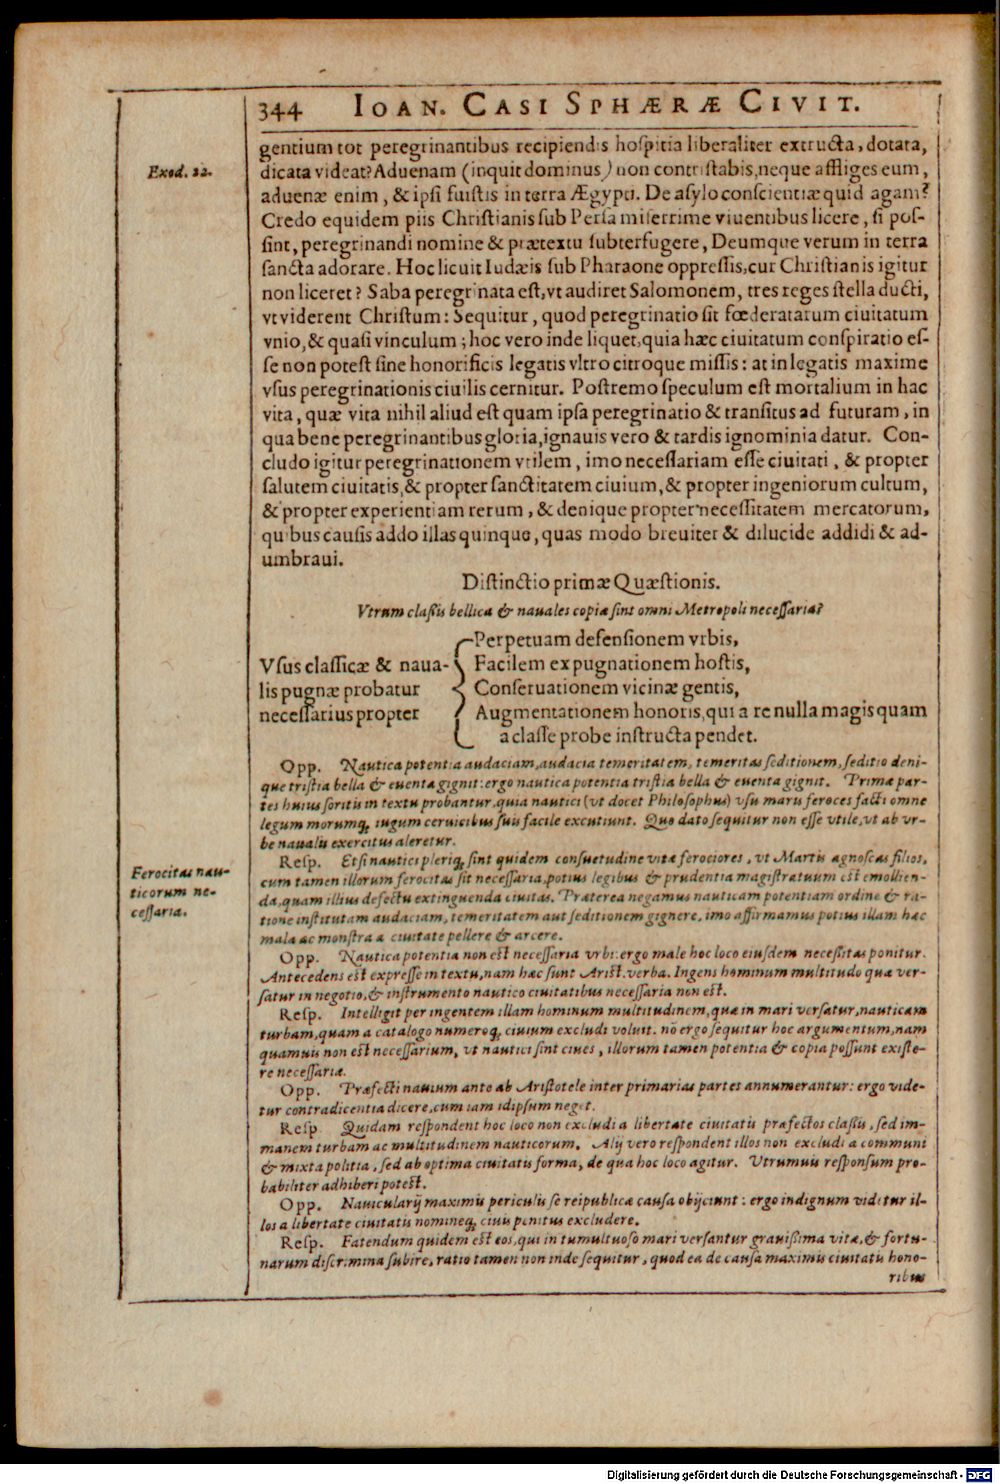 344 IOAN. CASI SPHÆRÆ CIVIT.
gentium tot peregrinantibus recipiendis hoſpitia liberaliter extructa, dotata,
Exod. 22.
dicata videat? Aduenam (inquit dominus) non contriſtabis, neque affliges eum,
aduenæ enim, & ipſi fuiſtis in terra Ægypti. De aſylo conſcientiæ quid agam?
Credo equidem piis Chriſtianis ſub Perſa miſerrime viuentibus licere, ſi poſ-
ſint, peregrinandi nomine & prætextu ſubterfugere, Deumque verum in terra
ſancta adorare. Hoc licuit Iudæis ſub Pharaone oppreſſis, cur Chriſtianis igitur
non liceret? Saba peregrinata eſt, vt audiret Salomonem, tres reges ſtella ducti,
vt viderent Chriſtum: Sequitur, quod peregrinatio ſit fœderatarum ciuitatum
vnio, & quaſi vinculum; hoc vero inde liquet, quia hæc ciuitatum conſpiratio eſ-
ſe non poteſt ſine honorificis legatis vltro citroque miſſis: at in legatis maxime
vſus peregrinationis ciuilis cernitur. Poſtremo ſpeculum eſt mortalium in hac
vita, quæ vita nihil aliud eſt quam ipſa peregrinatio & tranſitus ad futuram, in
qua bene peregrinantibus gloria, ignauis vero & tardis ignominia datur. Con-
cludo igitur peregrinationem vtilem, imo neceſſariam eſſe ciuitati, & propter
ſalutem ciuitatis, & propter ſanctitatem ciuium, & propter ingeniorum cultum,
& propter experientiam rerum, & denique propter neceſſitatem mercatorum,
quibus cauſis addo illas quinque, quas modo breuiter & dilucide addidi & ad-
umbraui.
Diſtinctio primæ Quæſtionis.
Vtrum claſſis bellica & nauales copiæ ſint omni Metropoli neceſſariæ?
Vſus claſſicæ & naua-
lis pugnæ probatur
neceſſarius propter
Perpetuam defenſionem vrbis,
Facilem expugnationem hoſtis,
Conſeruationem vicinæ gentis,
Augmentationem honoris, qui a re nulla magis quam
a claſſe probe inſtructa pendet.
Opp. Nautica potentia audaciam, audacia temeritatem, temeritas ſeditionem, ſeditio deni-
que triſtia bella & euenta gignit: ergo nautica potentia triſtia bella & euenta gignit. Primæ par-
tes huius ſoritis in textu probantur, quia nautici (vt docet Philoſophus) vſu maris feroces facti omne
legum morumq; iugum ceruicibus ſuis facile excutiunt. Quo dato ſequitur non eſſe vtile, vt ab vr-
be naualis exercitus aleretur.
Ferocitas nau-
ticorum ne-
ceſſaria.
Reſp. Etſi nautici pleriq; ſint quidem conſuetudine vitæ ferociores, vt Martis agnoſcas filios,
cum tamen illorum ferocitas ſit neceſſaria, potius legibus & prudentia magiſtratuum eſt emollien-
da, quam illius defectu extinguenda ciuitas. Præterea negamus nauticam potentiam ordine & ra-
tione inſtitutam audaciam, temeritatem aut ſeditionem gignere, imo affirmamus potius illam hæc
mala ac monſtra a ciuitate pellere & arcere.
Opp. Nautica potentia non eſt neceſſaria vrbi: ergo male hoc loco eiuſdem neceſſitas ponitur.
Antecedens eſt expreſſe in textu, nam hæc ſunt Ariſt. verba. Ingens hominum multitudo quæ ver-
ſatur in negotio, & inſtrumento nautico ciuitatibus neceſſaria non eſt.
Reſp. Intelligit per ingentem illam hominum multitudinem, quæ in mari verſatur, nauticam
turbam, quam a catalogo numeroq; ciuium excludi voluit. nō ergo ſequitur hoc argumentum, nam
quamuis non eſt neceſſarium, vt nautici ſint ciues, illorum tamen potentia & copia poſſunt exiſte-
re neceſſariæ.
Opp. Præfecti nauium ante ab Ariſtotele inter primarias partes annumerantur: ergo vide-
tur contradicentia dicere, cum iam idipſum neget.
Reſp. Quidam reſpondent hoc loco non excludi a libertate ciuitatis præfectos claſſis, ſed im-
manem turbam ac multitudinem nauticorum. Alij vero reſpondent illos non excludi a communi
& mixta politia, ſed ab optima ciuitatis forma, de qua hoc loco agitur. Vtrumuis reſponſum pro-
babiliter adhiberi poteſt.
Opp. Nauicularij maximis periculis ſe reipublicæ cauſa obijciunt: ergo indignum videtur il-
los a libertate ciuitatis nomineq; ciuis penitus excludere.
Reſp. Fatendum quidem eſt eos, qui in tumultuoſo mari verſantur grauiſſima vitæ, & fortu-
narum diſcrimina ſubire, ratio tamen non inde ſequitur, quod ea de cauſa maximis ciuitatis hono-
ribus
Digitalisierung gefördert durch die Deutsche Forschungsgemeinschaft - DFG